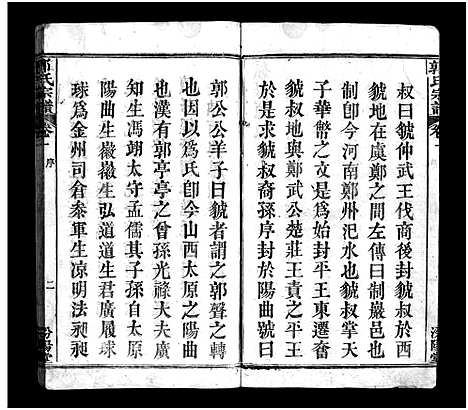 郭氏宗譜 卷一
叔曰虢仲武王伐商後封虢叔於西
虢地在虞鄭之間左傳曰制巖邑也
制卽今河南鄭州汜水虢叔掌天
子華幣之文是為始封平王東遷奮
虢叔地與鄭武公楚莊王責之平王
於是求虢叔裔孫序封於陽曲號曰
郭公公羊子曰虢者謂之郭聲之轉
也因以為氏卽今山西太原之陽曲
也漢有郭亭亭之曾孫光祿大夫廣
知生馮翊太守孟儒其子孫自太原
陽曲生徽徽生弘道道生廣履球
球為金州司倉叅軍生涼明法昶昶
郭氏宗譜 卷一 序
二
汾陽堂